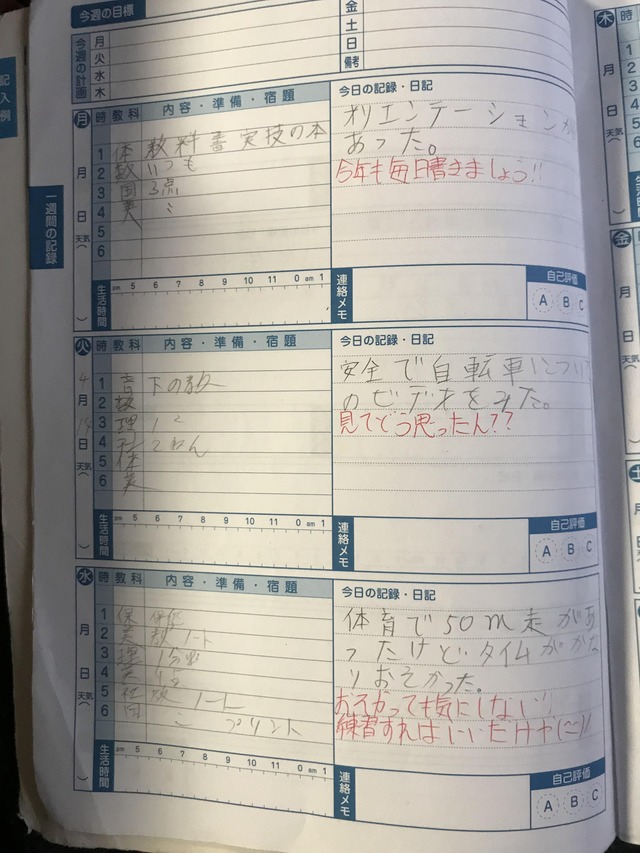 今週の目標
今週の計画
月
火
水
木
金
土
日
備考
記入例
一週間の記録
月 時 教科 内容・準備・宿題
1 体 教科書 実技の本
2 数 いつも
3 国 3点
4 英 〃
5
6
月
日
天気
生活時間
pm 5 6 7 8 9 10 11 0 am 1
今日の記録・日記
オリエンテーションが
あった。
今年も毎日書きましょう!!
連絡メモ
自己評価
A B C
火 時 教科 内容・準備・宿題
1 音
2 数
3 理
4
5 体
6 英
4月
日
天気
生活時間
pm 5 6 7 8 9 10 11 0 am 1
今日の記録・日記
安全で自転車について
のビデオをみた。
見てどう思ったん??
連絡メモ
自己評価
A B C
水 時 教科 内容・準備・宿題
1 保
2 英 ノート
3 理
4
5 社 ノート
6 国 プリント
月
日
天気
生活時間
pm 5 6 7 8 9 10 11 0 am 1
今日の記録・日記
体育で50m走があ
ったけどタイムがかな
りおそかった。
おそかっても気にしない!
練習すればいいだけや(ニ)!!
連絡メモ
自己評価
A B C
木 時
1
2
3
4
5
6
月
日
天気
金
土